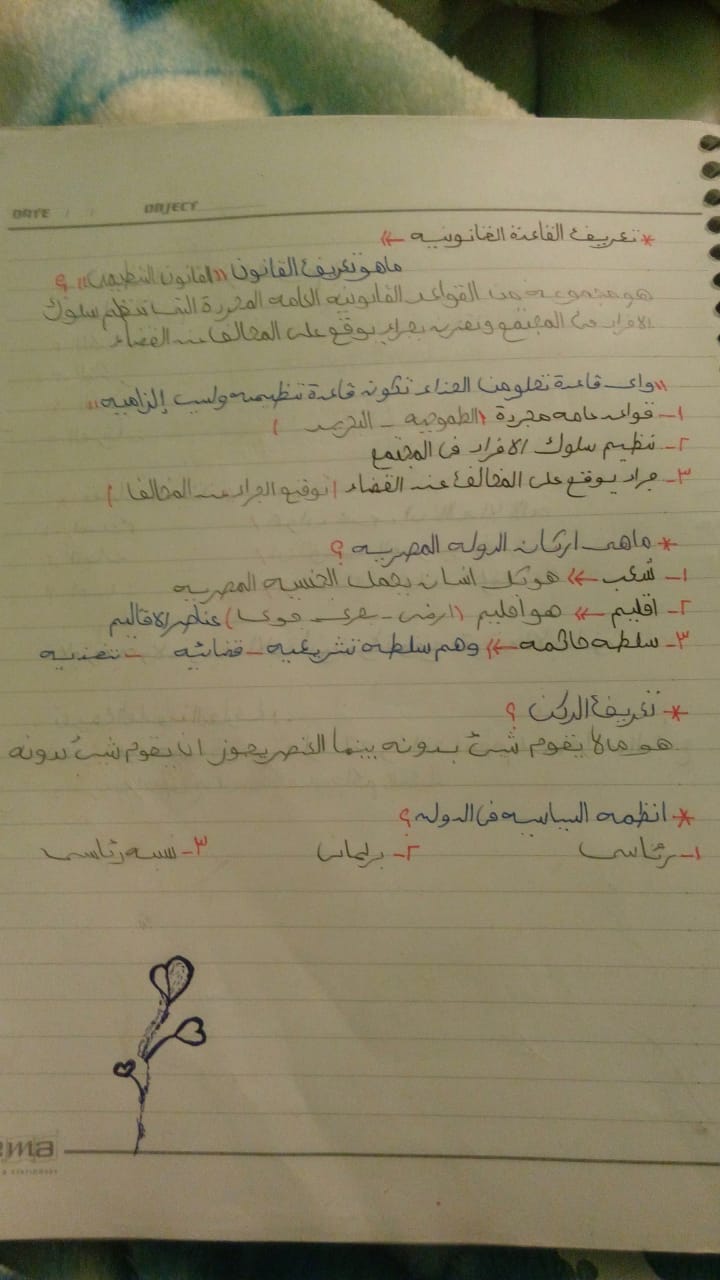 DATE / / OBJECT
* تعريف القاعدة القانونيه
ماهو تعريف القانون "القانون التنظيمى" ؟
هو مجموعه من القواعد القانونيه العامه المجردة التى تنظم سلوك
الافراد فى المجتمع وتقترن بجزاء يوقع على المخالف عند القضاء
"واى قاعدة تخلو من الجزاء تكون قاعدة تنظيميه وليس إلزاميه"
١- قواعد عامه مجردة ( - التجريد )
٢- تنظيم سلوك الافراد فى المجتمع
٣- جزاء يوقع على المخالف عند القضاء (توقيع الجزاء عند المخالفا)
* ماهى اركان الدوله المصريه ؟
١- شعب » هو كل انسان يحمل الجنسيه المصريه
٢- اقليم » هو اقليم (ارضى - بحرى - جوى) عناصر الاقاليم
٣- سلطه حاكمه » وهم سلطه تشريعيه - قضائيه - تنفذيه
* تعريف الركن ؟
هو مالا يقوم شئ بدونه بينما العنصر يجوز ان يقوم شئ بدونه
* انظمه السياسيه فى الدوله ؟
١- رئاسى ٢- برلمانى ٣- شبه رئاسى
ema
& STATIONERY